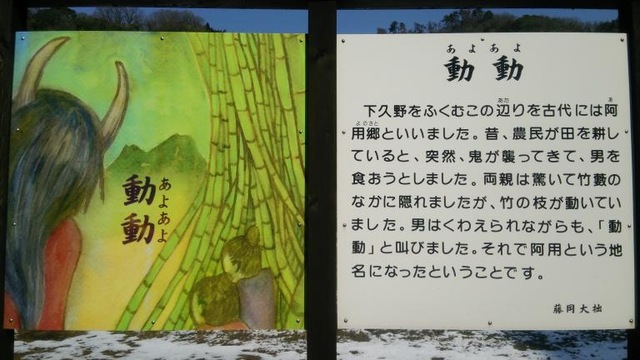 動動
あよあよ
あよあよ
動動
下久野をふくむこの辺りを古代には阿
あた
あ
用郷といいました。昔、農民が田を耕し
よのさと
ていると、突然、鬼が襲ってきて、男を
食おうとしました。両親は驚いて竹藪の
なかに隠れましたが、竹の枝が動いてい
ました。男はくわえられながらも、「動
動」と叫びました。それで阿用という地
名になったということです。
藤岡大拙